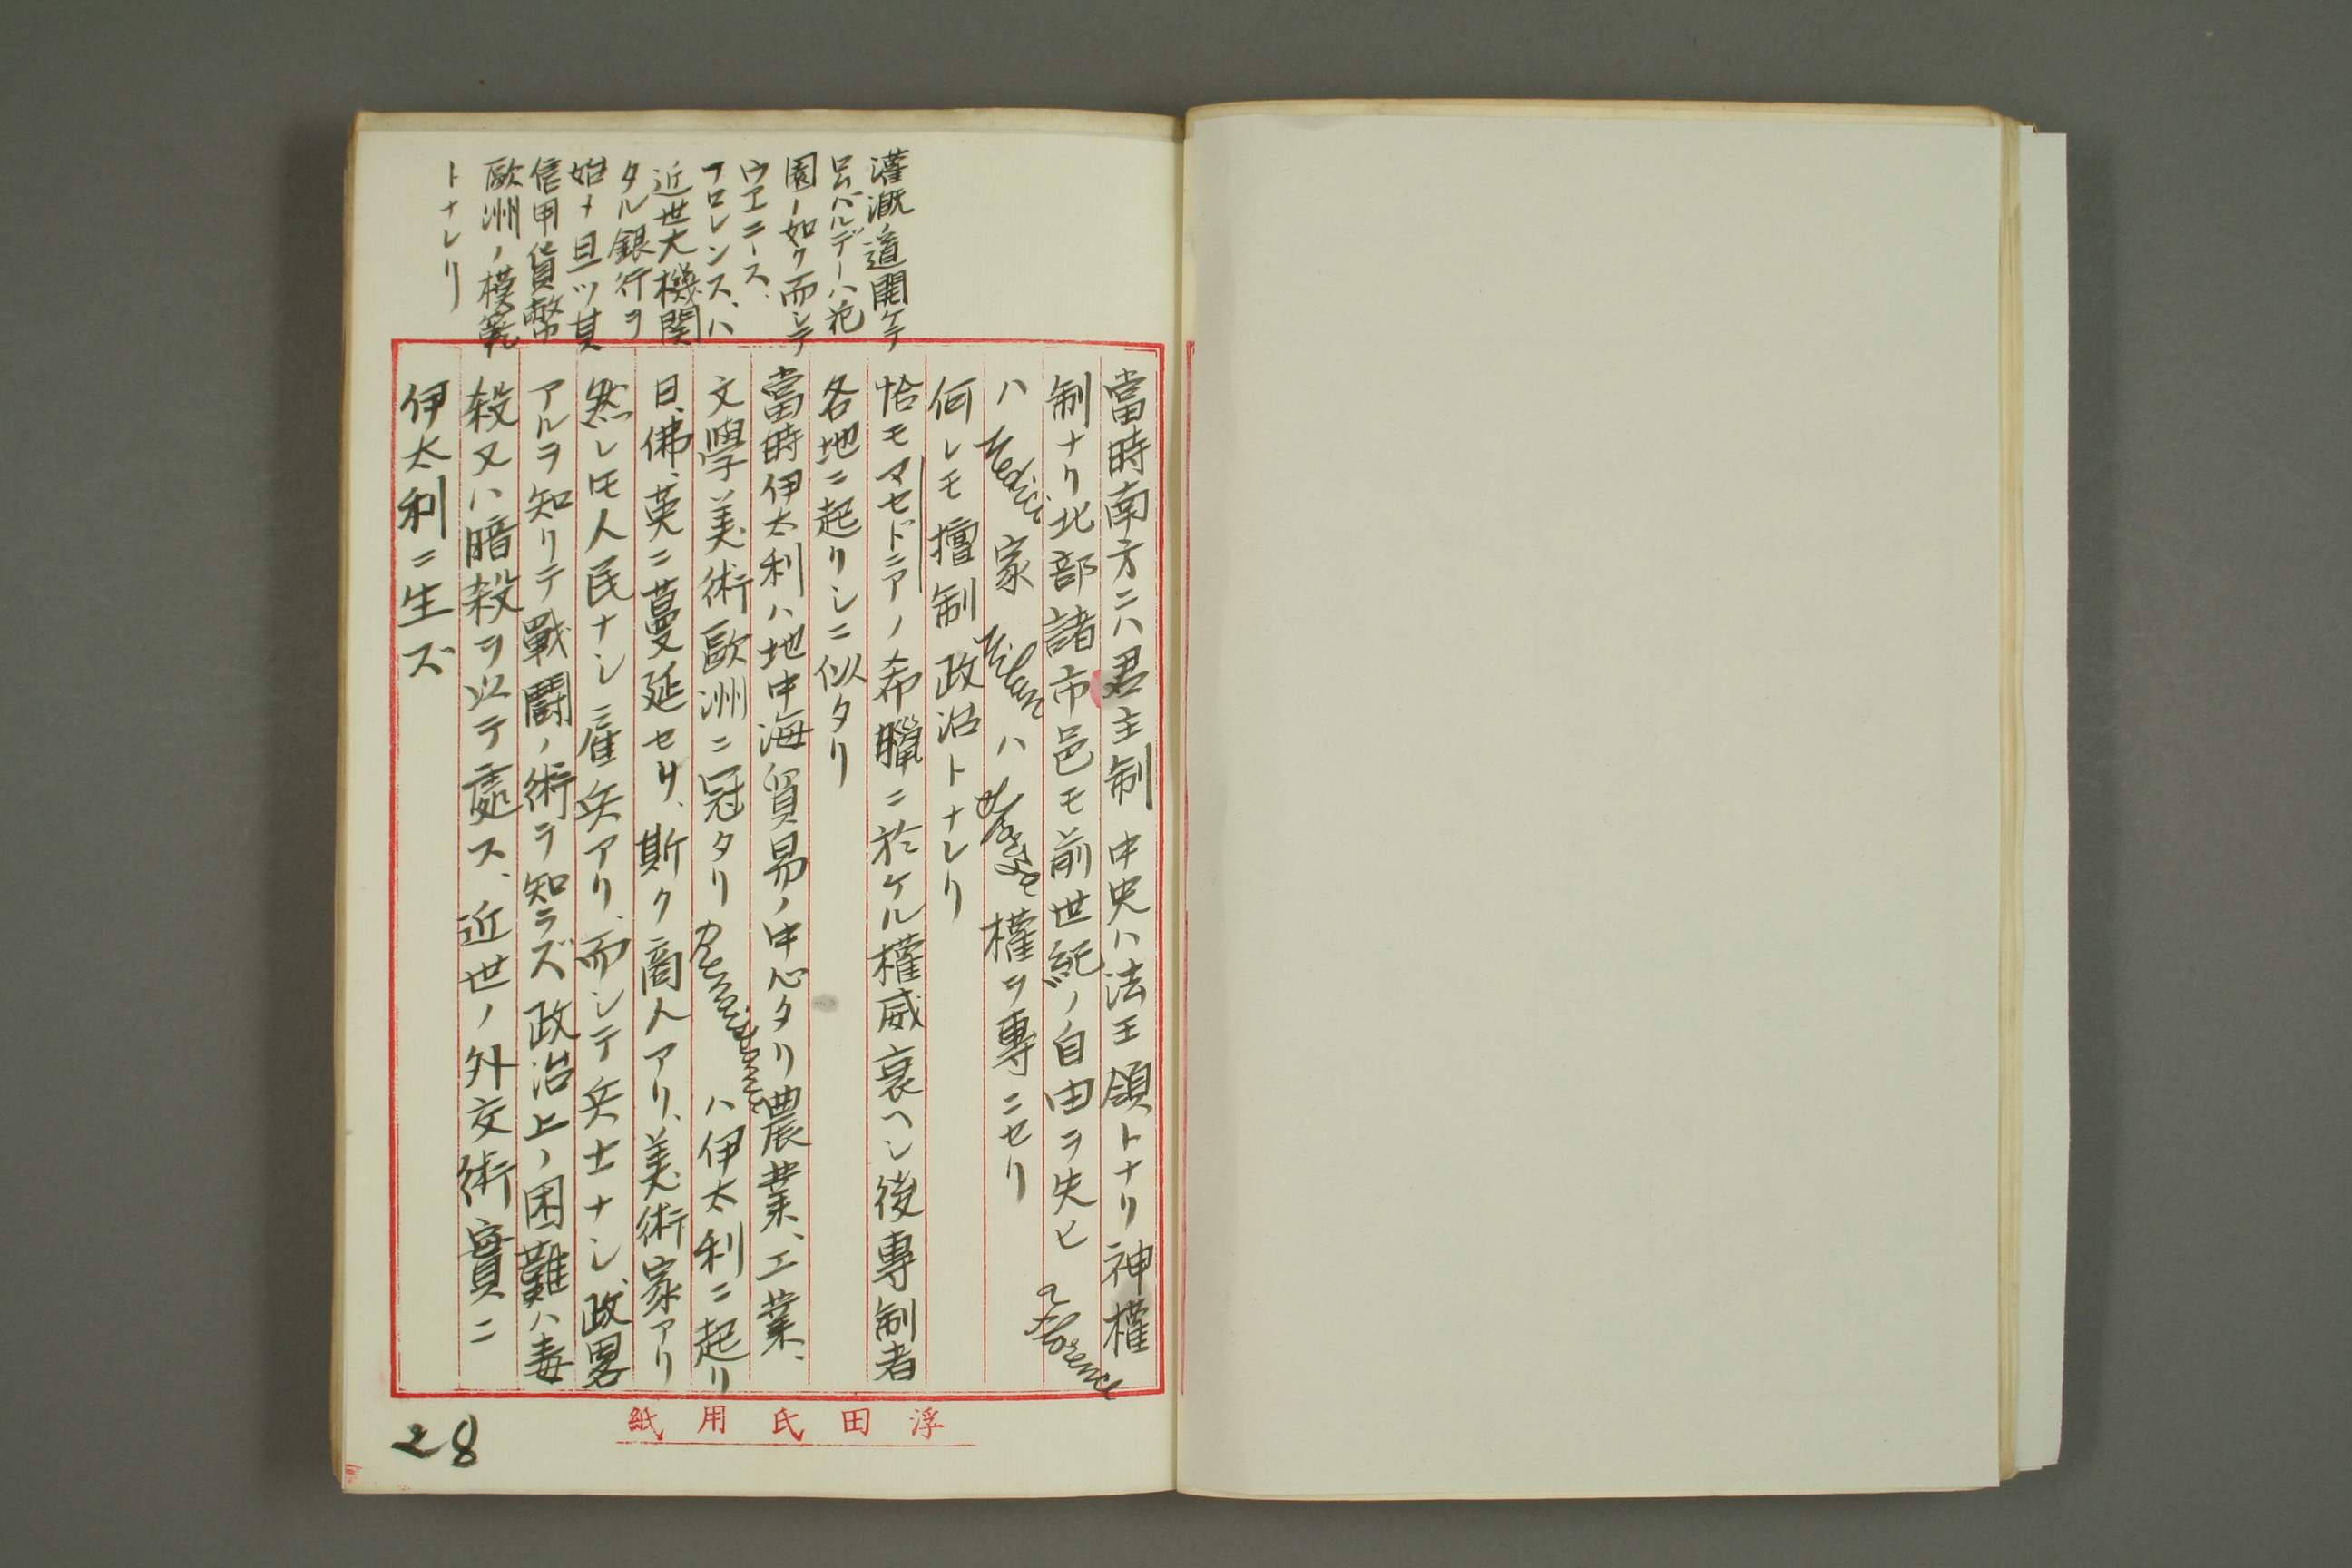 灌漑ノ道開ケテ
呂ムバルデーハ花
園ノ如ク而シテ
ウヱニース、
フロレンス、ハ
近世大機関
タル銀行ヲ
始メ且ツ其
信用貨幣
歐洲ノ模範
トナレリ
當時南方ニハ君主制 中央ハ法王領トナリ神權
制ナリ北部諸市邑モ前世紀ノ自由ヲ失ヒ Florence
ハ Medici 家 Milan ハ Sforza 權ヲ專ニセリ
何レモ擅制政治トナレリ
恰モマセドニアノ希臘ニ於ケル權威衰ヘシ後專制者
各地ニ起リシニ似タリ
當時伊太利ハ地中海貿易ノ中心タリ農業、工業、
文學美術歐洲ニ冠タリ Renaissance ハ伊太利ニ起リ
日、佛、英ニ蔓延セリ、斯ク商人アリ、美術家アリ
然レ𪜈人民ナシ雇兵アリ、而シテ兵士ナシ、政畧
アルヲ知リテ戰鬪ノ術ヲ知ラズ政治上ノ困難ハ毒
殺又ハ暗殺ヲ以テ處ス、近世ノ外交術實ニ
伊太利ニ生ズ
浮田氏用紙
28